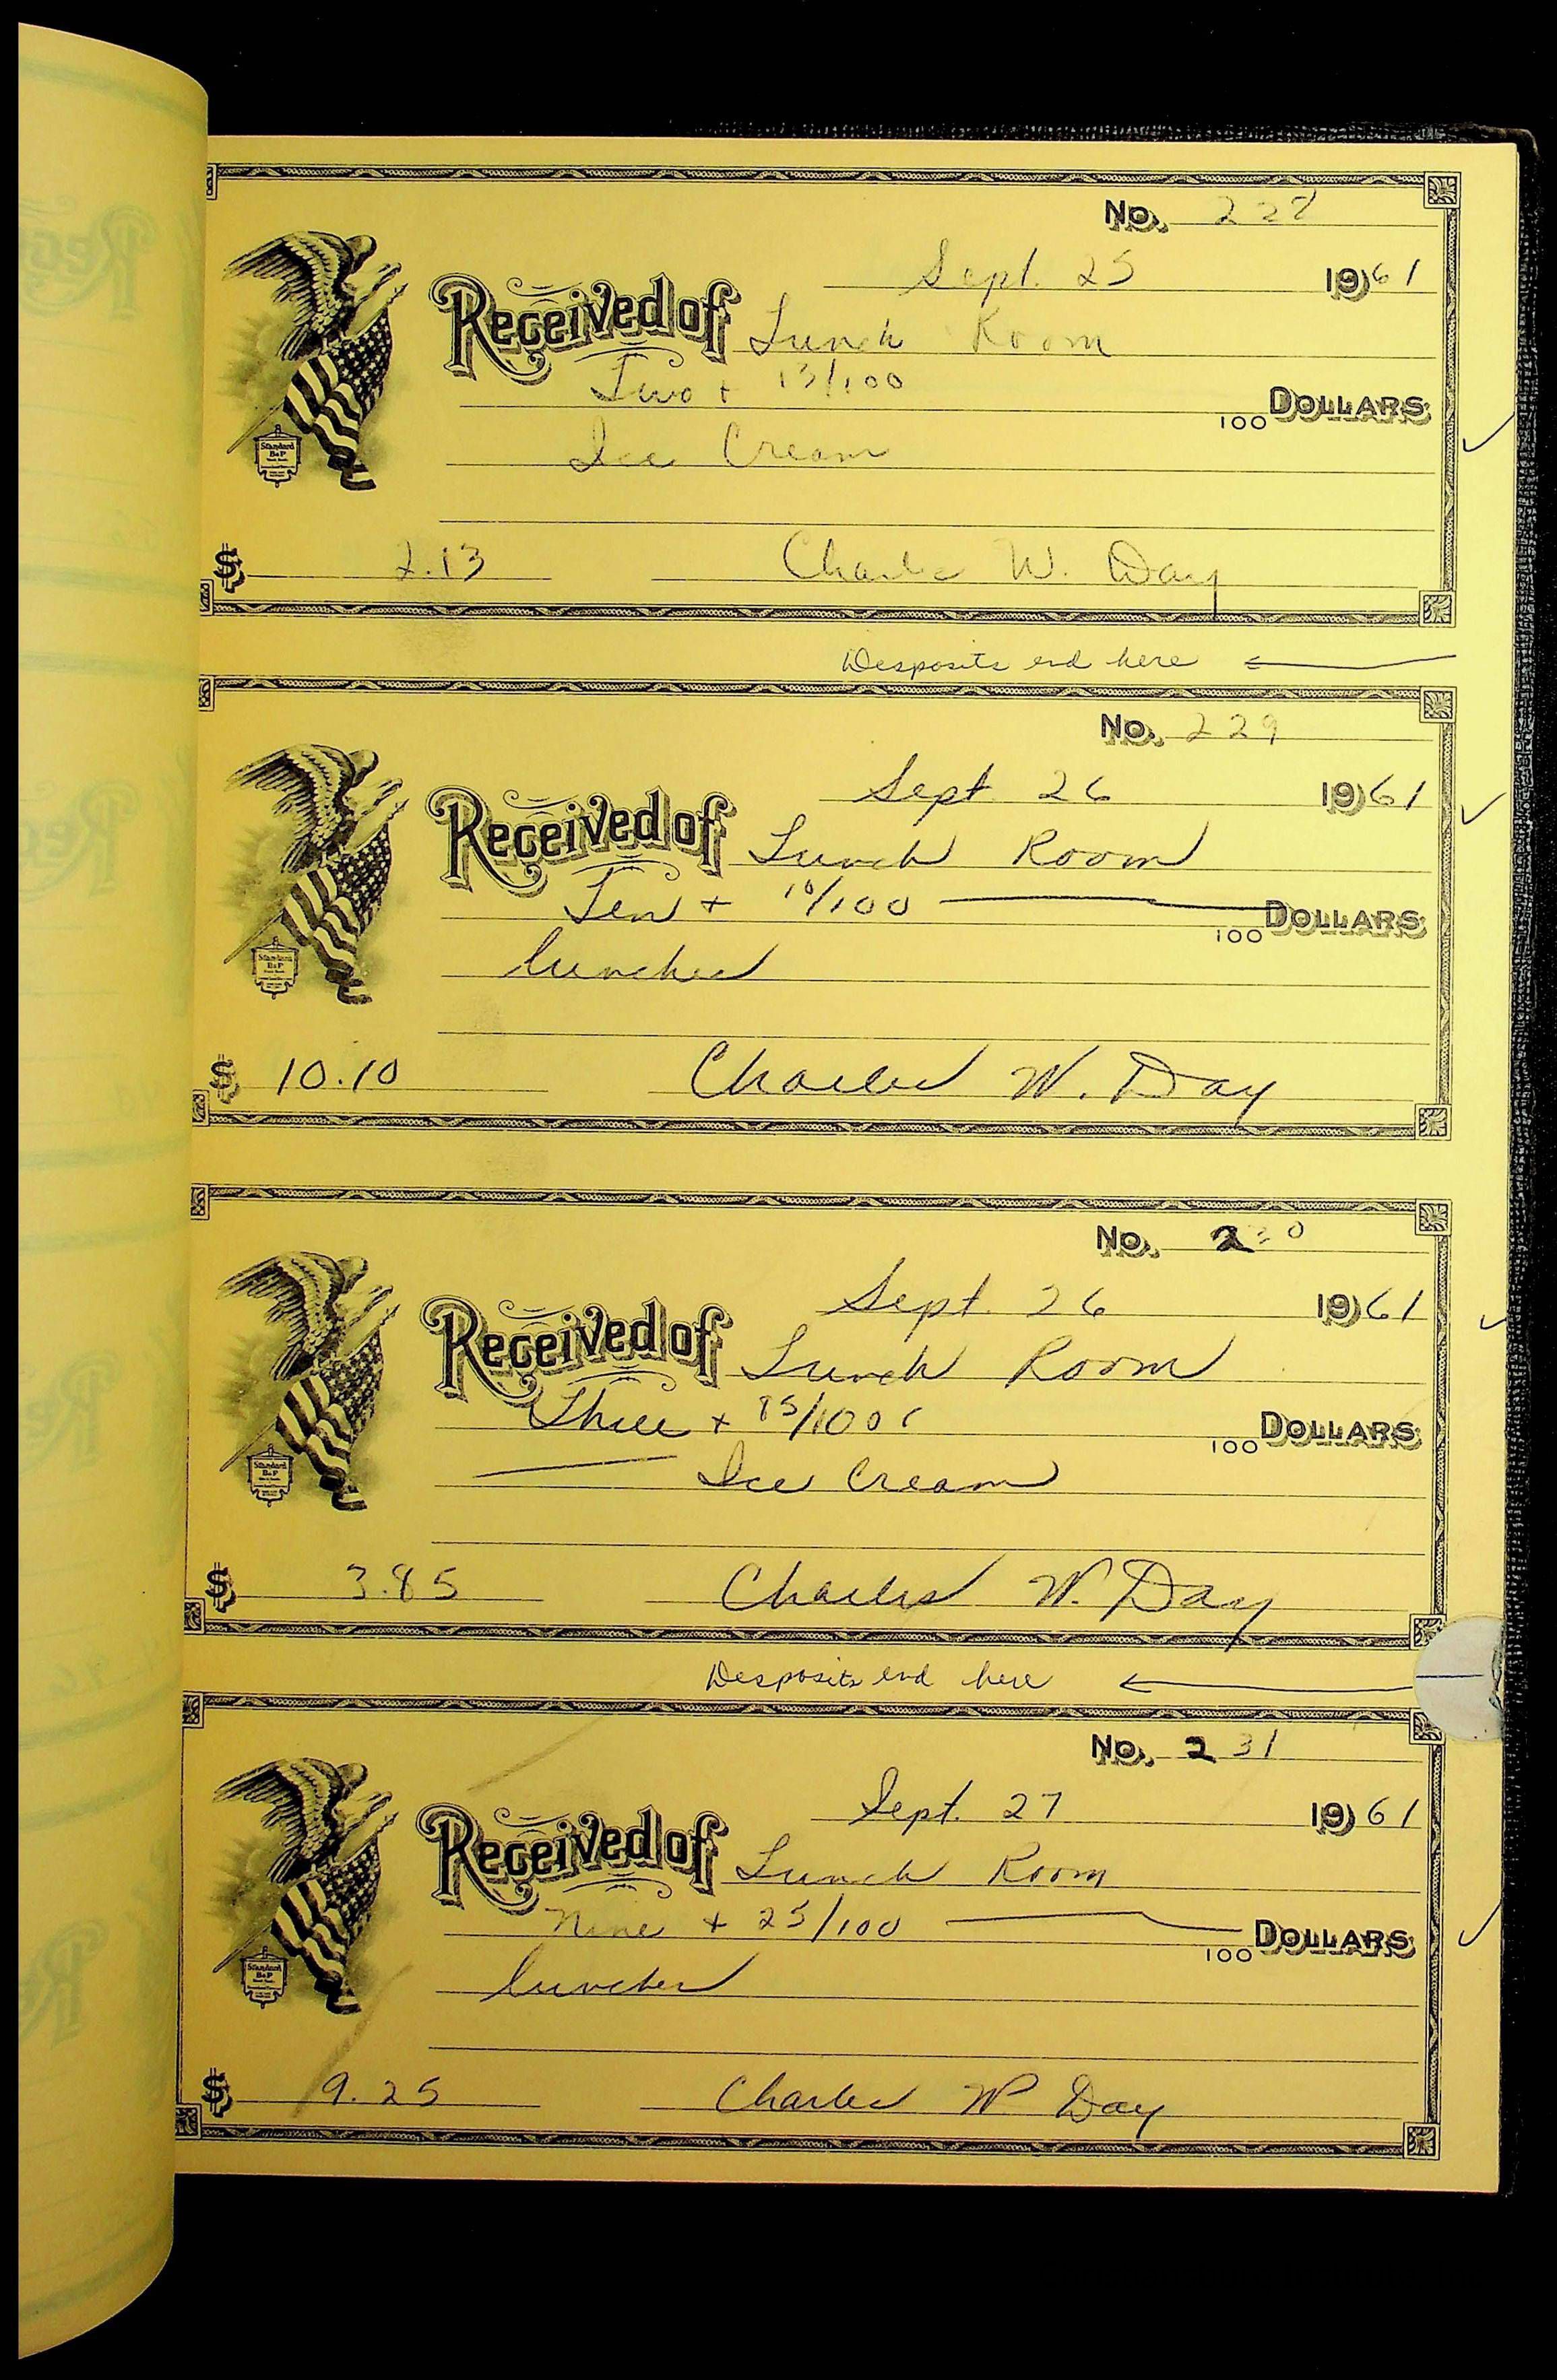 No. 228
Sept. 25 1961
Received of Lunch Room
Two + 13/100
100 DOLLARS
Ice Cream
$ 2.13 Charles W. Day
Desposits end here
No. 229
Sept 26 1961
Received of Lunch Room
Ten + 10/100
100 DOLLARS
lunches
$ 10.10 Charles W. Day
No. 230
Sept. 26 1961
Received of Lunch Room
Three + 85/100
100 DOLLARS
Ice Cream
$ 3.85 Charles W. Day
Desposits end here
No. 231
Sept. 27 1961
Received of Lunch Room
Nine + 25/100
100 DOLLARS
lunches
$ 9.25 Charles W Day